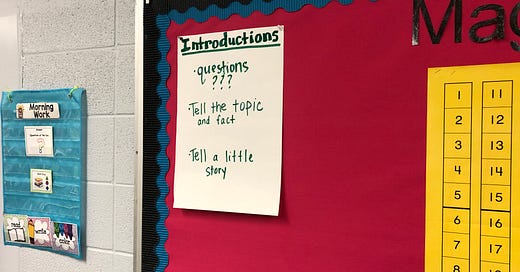 Morning
Work
read
write
color
Introductions
·questions
???
·Tell the topic
and fact
·Tell a little
story
Mag
1
2
3
4
5
6
7
8
11
12
13
14
15
16
17
18